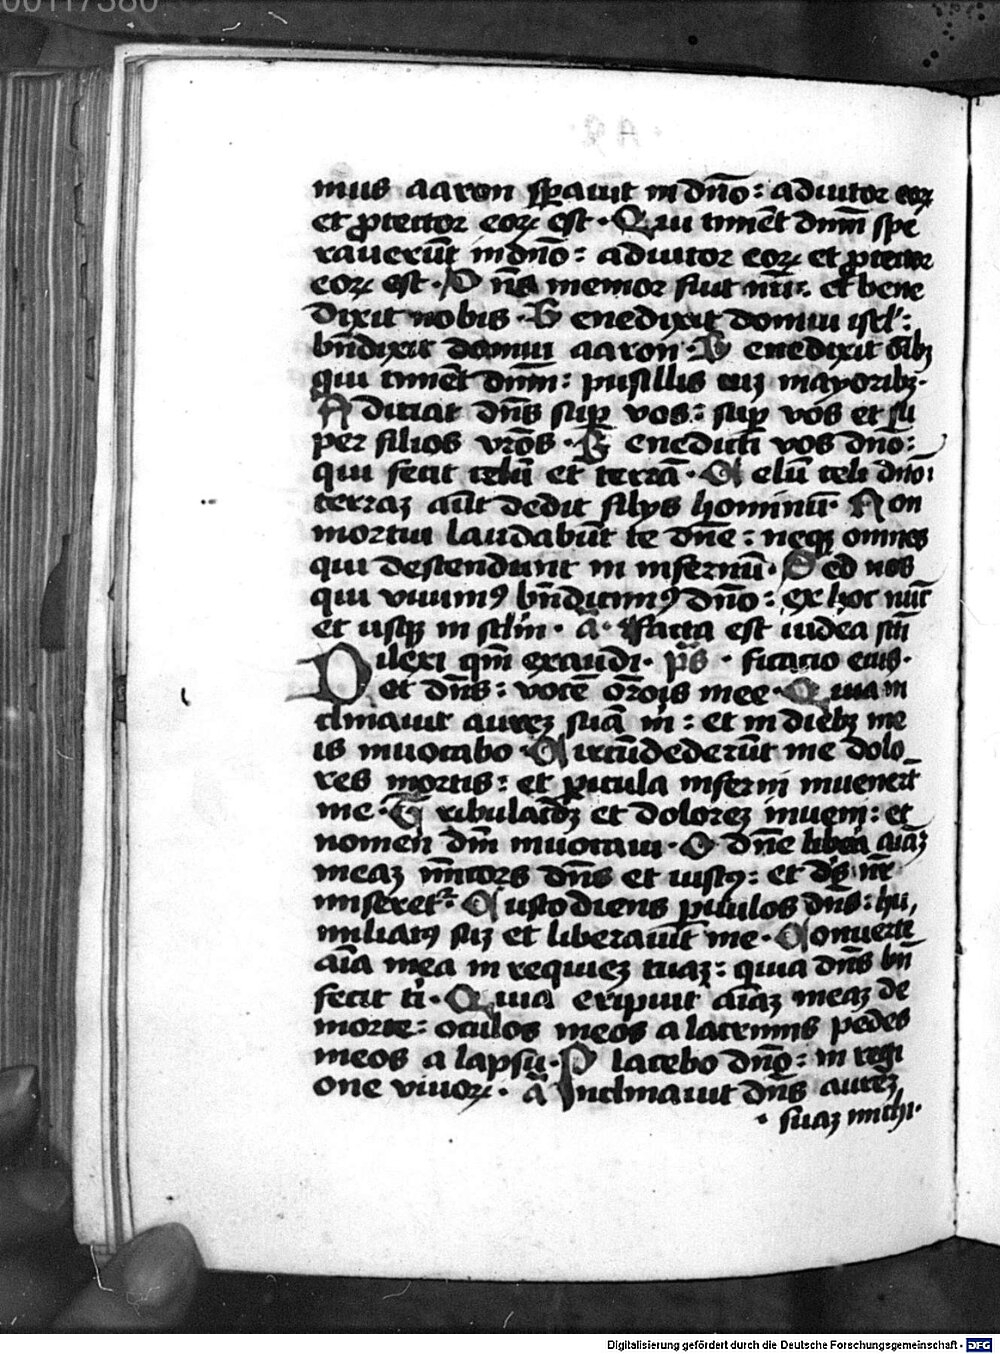 00117380
mus aaron sꝑauit in dn̄o : adiutor eoꝝ
et ꝓtector eoꝝ est · Qui timēt dnm̄ spe
rauerūt in dn̄o : adiutor eoꝝ et ꝓtector
eoꝝ est · D ns̄ memor fuit nr̄i : et bene
dixit nobis · B enedixit domui isrl̄ :
bn̄dixit domui aaron · B enedixit oībꝫ
qui timēt dnm̄ : pusillis cū mayoribꝫ ·
A diciat dn̄s suꝑ vos : suꝑ vos et su
per filios vr̄os · B enedicti vos dn̄o :
qui fecit celū et terrā · C elū celi dn̄o :
terraꝫ aūt dedit filys hominū · Non
mortui laudabūt te dn̄e : neqꝫ omnes
qui descendunt in infernū · Sed nos
qui viuimꝰ bn̄dicimꝰ dn̄o : ex hoc nūc
et usqꝫ in sclm̄ · a᷎ · Facta est iudea sc̄ti
Dilexi qm̄ exaudi · ps̄ · ficacio eius ·
et dn̄s : vocē or̄ois mee · Quia in
clinauit aureꝫ suā m̄ : et in diebꝫ me
is inuocabo · C ircūdederūt me dolo
res mortis : et ꝑicula inferni inuenert̄
me · T ribulacōꝫ et doloreꝫ inueni : et
nomen dn̄i inuocaui · O dn̄e libera aīaꝫ
meaꝫ mīcors dn̄s et iustꝰ : et ds̄ nr̄
miseret᷑ · C ustodiens ꝑuulos dn̄s : hu,
miliatꝰ suꝫ et liberauit me · Conuerte
aīa mea in requieꝫ tuaꝫ : quia dn̄s bn̄
fecit ti · Quia eripuit aīaꝫ meaꝫ de
morte : oculos meos a lacrimis pedes
meos a lapsu · P lacebo dn̄o : in regi
one viuoꝝ · ā Inclinauit dn̄s aureꝫ
· suaꝫ michi ·
Digitalisierung gefördert durch die Deutsche Forschungsgemeinschaft - DFG